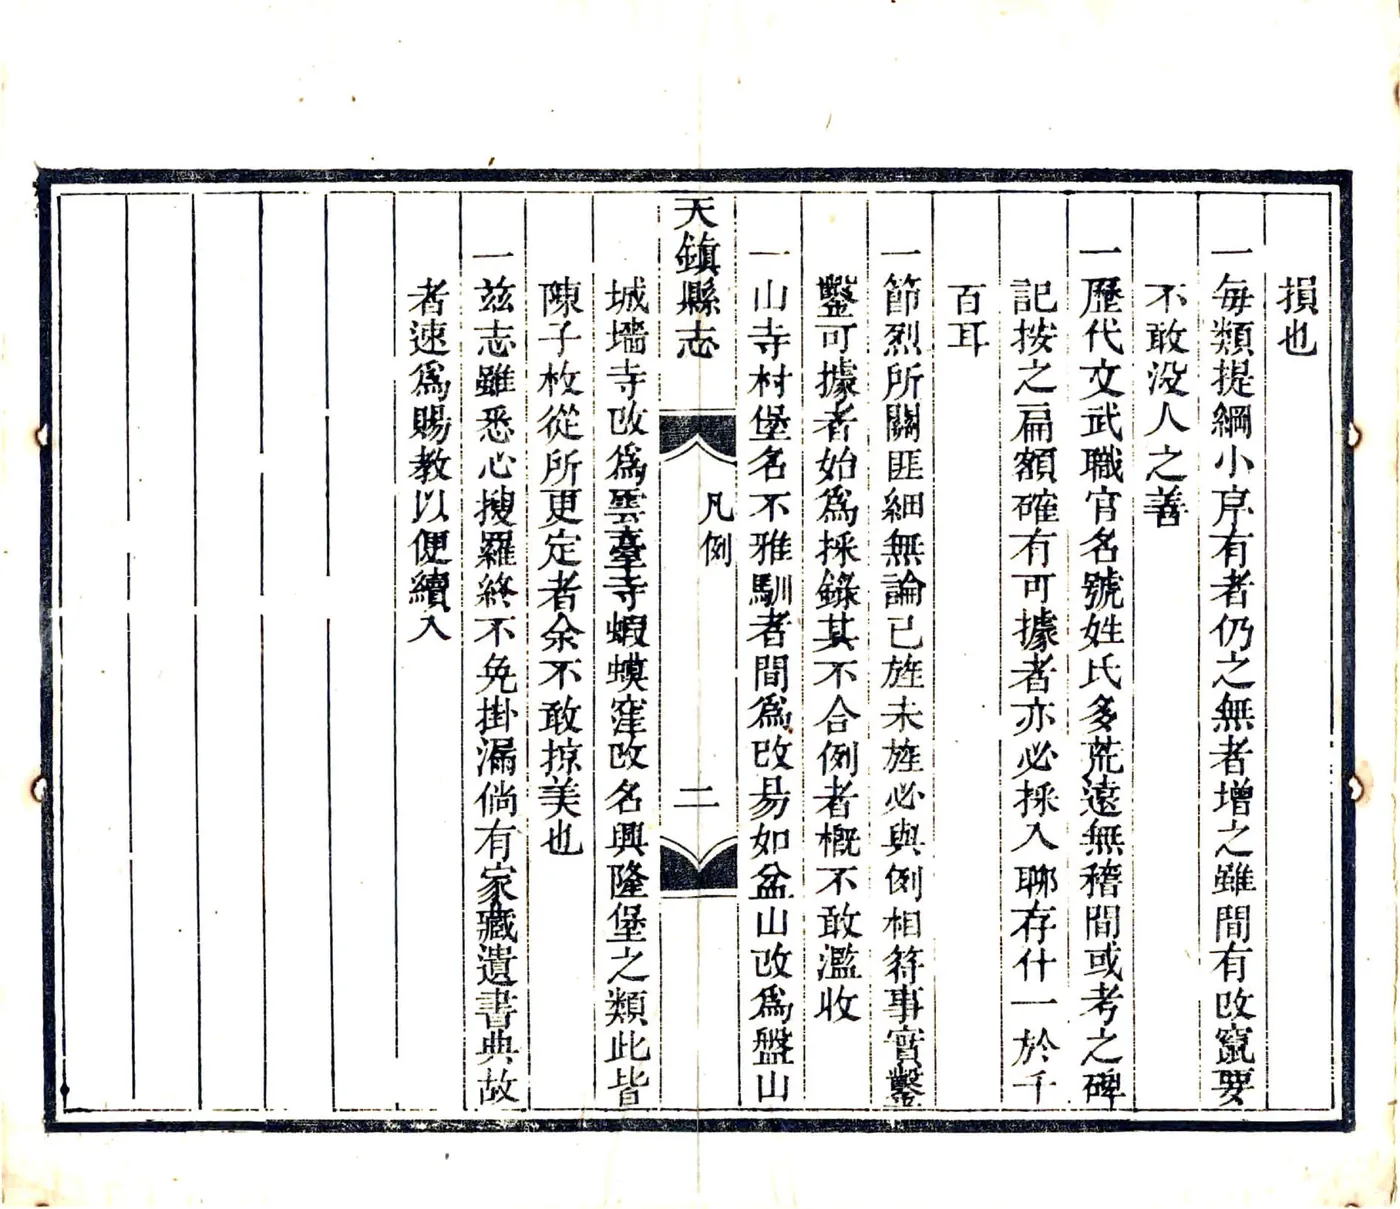 損也
一每類提綱小序有者仍之無者增之雖間有改竄要
不敢没人之善
一歷代文武職官名號姓氏多荒遠無稽間或考之碑
記按之扁額確有可據者亦必採入聊存什一於千
百耳
一節烈所關匪細無論已旌未旌必與例相符事實鑿
鑿可據者始爲採錄其不合例者概不敢濫收
一山寺村堡名不雅馴者間爲改易如盆山改爲盤山
天鎮縣志
凡例
二
城墻寺改爲雲臺寺蝦蟆窪改名興隆堡之類此皆
陳子枚從所更定者余不敢掠美也
一兹志雖悉心搜羅終不免掛漏倘有家藏遺書典故
者速爲賜教以便續入